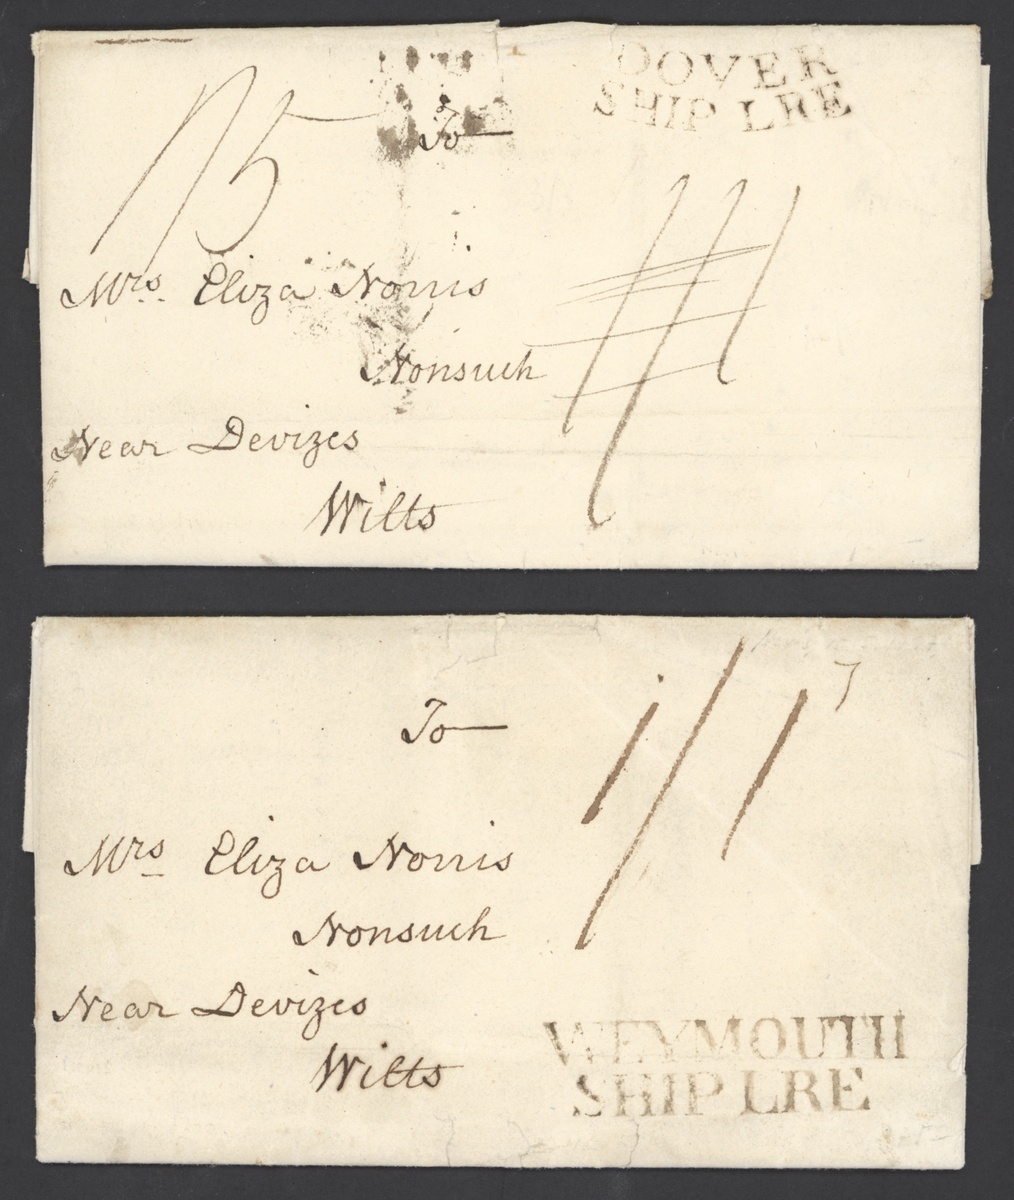 DOVER
SHIP LRE
1/5
To
1/1
Mrs Eliza Norris
Nonsuch
Near Devizes
Wilts
To
1/1
7
Mrs Eliza Norris
Nonsuch
Near Devizes
Wilts
WEYMOUTH
SHIP LRE